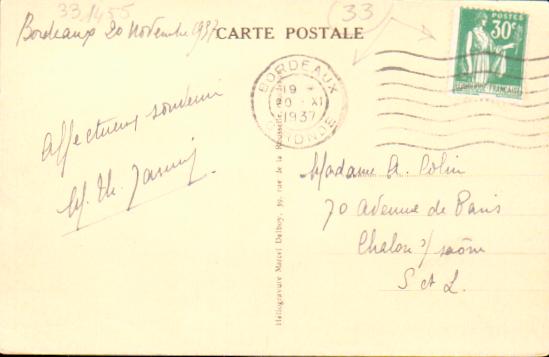 33 1455
(33)
Bordeaux 20 Novembre 1937
CARTE POSTALE
POSTES
30c
REPUBLIQUE FRANÇAISE
BORDEAUX
19 *
20 · XI
1937
GIRONDE
Affectueux souvenir
M. Th.
Héliogravure Marcel Delboy, 99, rue de la
Madame A. Colin
70 avenue de Paris
Chalon s/ saône
S et L.